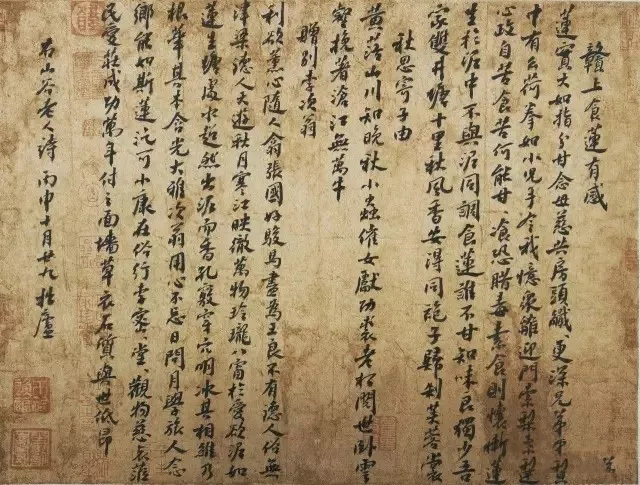 贛上食蓮有感
蓮實大如指分甘念母慈共房頭更深兄弟思實
中有么荷拳如小兒手令我憶衆雛迎門索梨棗蓮
心政自苦食苦何能甘、飡恐腊毒素食則懷慚蓮
生於泥中不與泥同調食蓮誰不甘知味良獨少吾
家雙井塘十里秋風香安得同袍子歸制芙蓉裳
秋思寄子由
黄落山川知晚秋小蟲催女獻功裘老松閱世臥雲
壑挽著滄江無萬牛
贈別李次翁
利欲薰心隨人翕張國好駿馬盡爲王良不有德人俗無
津梁德人天遊秋月寒江映徹萬物玲瓏八窗於愛欲泥如
蓮生塘處水超然出泥而香孔竅穿穴明冰其相維乃
根華其本含光大雅次翁用心不忘日問月學旅人念
鄉能如斯蓮汔可小康在俗行李密、堂、觀物慈哀蒞
民愛莊成功萬年付之面墻草衣石質與世低昂
右山谷老人詩丙申十月廿九